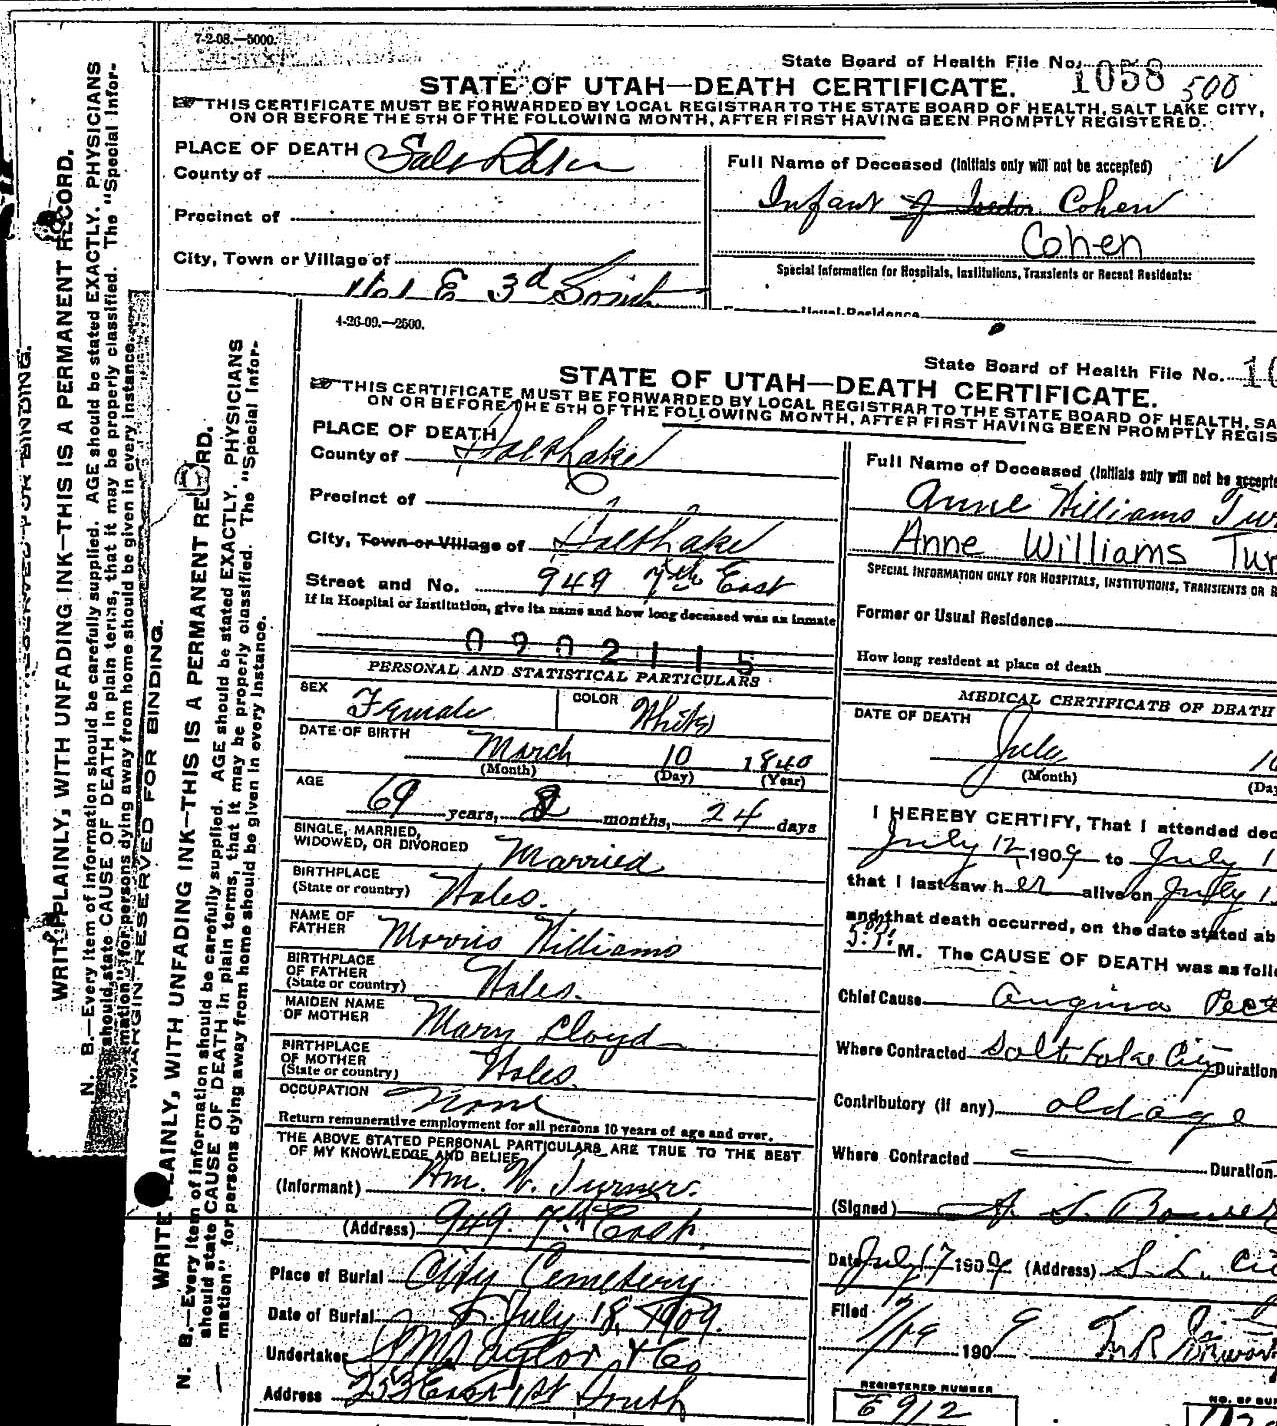 7-2-08.—5000.
State Board of Health File No. 1058 500
STATE OF UTAH—DEATH CERTIFICATE.
THIS CERTIFICATE MUST BE FORWARDED BY LOCAL REGISTRAR TO THE STATE BOARD OF HEALTH, SALT LAKE CITY,
ON OR BEFORE THE 5TH OF THE FOLLOWING MONTH, AFTER FIRST HAVING BEEN PROMPTLY REGISTERED.
PLACE OF DEATH
County of Salt Lake
Precinct of
City, Town or Village of
E 3d South
Full Name of Deceased (Initials only will not be accepted)
Infant of Isedor Cohen
Cohen
Special Information for Hospitals, Institutions, Transients or Recent Residents:
WRITE PLAINLY, WITH UNFADING INK—THIS IS A PERMANENT RECORD.
N. B.—Every item of information should be carefully supplied. AGE should be stated EXACTLY. PHYSICIANS
should state CAUSE OF DEATH in plain terms, that it may be properly classified. The "Special Infor-
mation" for persons dying away from home should be given in every instance.
MARGIN RESERVED FOR BINDING.
4-26-09.—2500.
State Board of Health File No. 10
STATE OF UTAH—DEATH CERTIFICATE.
THIS CERTIFICATE MUST BE FORWARDED BY LOCAL REGISTRAR TO THE STATE BOARD OF HEALTH, SA
ON OR BEFORE THE 5TH OF THE FOLLOWING MONTH, AFTER FIRST HAVING BEEN PROMPTLY REGIS
PLACE OF DEATH
County of Salt Lake
Precinct of
City, Town or Village of Salt Lake
Street and No. 949 7th East
If in Hospital or Institution, give its name and how long deceased was an inmate
0902115
PERSONAL AND STATISTICAL PARTICULARS
SEX Female COLOR White
DATE OF BIRTH March 10 1840
(Month) (Day) (Year)
AGE 69 years, months, 24 days
SINGLE, MARRIED,
WIDOWED, OR DIVORCED Married
BIRTHPLACE
(State or country) Wales.
NAME OF
FATHER Morris Williams
BIRTHPLACE
OF FATHER
(State or country) Wales.
MAIDEN NAME
OF MOTHER Mary Lloyd
BIRTHPLACE
OF MOTHER
(State or country) Wales.
OCCUPATION None
Return remunerative employment for all persons 10 years of age and over.
THE ABOVE STATED PERSONAL PARTICULARS ARE TRUE TO THE BEST
OF MY KNOWLEDGE AND BELIEF
(Informant) Wm. W. Turner.
(Address) 949. 7th East.
Place of Burial City Cemetery
Date of Burial July 18, 1909.
Undertaker Taylor & Co
Address 253 East 1st South
Full Name of Deceased (Initials only will not be accepte
Anne Williams Tur
Anne Williams Tur
SPECIAL INFORMATION ONLY FOR HOSPITALS, INSTITUTIONS, TRANSIENTS OR R
Former or Usual Residence
How long resident at place of death
MEDICAL CERTIFICATE OF DEATH
DATE OF DEATH July 1
(Month) (Day
I HEREBY CERTIFY, That I attended dec
July 12, 1909 to July 1
that I last saw her alive on July 1
and that death occurred, on the date stated ab
5 P. M. The CAUSE OF DEATH was as follo
Chief Cause Angina Pect
Where Contracted Salt Lake City Duration
Contributory (if any) old age
Where Contracted Duration
(Signed) A. S. Bower
Date July 17 1909 (Address) S. L. Ci
Filed 7/19 1909
REGISTERED NUMBER
E 912
WRITE PLAINLY, WITH UNFADING INK—THIS IS A PERMANENT RECORD.
N. B.—Every item of information should be carefully supplied. AGE should be stated EXACTLY. PHYSICIANS
should state CAUSE OF DEATH in plain terms, that it may be properly classified. The "Special Infor-
mation" for persons dying away from home should be given in every instance.
MARGIN RESERVED FOR BINDING.